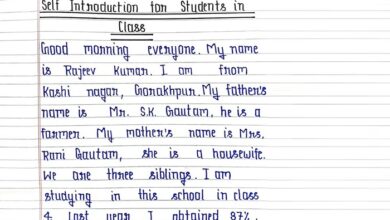 Self Introduction for Students in
Class
Good morning everyone. My name
is Rajeev Kumar. I am from
Kashi nagar, Gorakhpur. My father's
name is Mr. S.K. Gautam, he is a
farmer. My mother's name is Mrs.
Rani Gautam, she is a housewife.
We are three siblings. I am
studying in this school in class
4. Last year I obtained 87%.